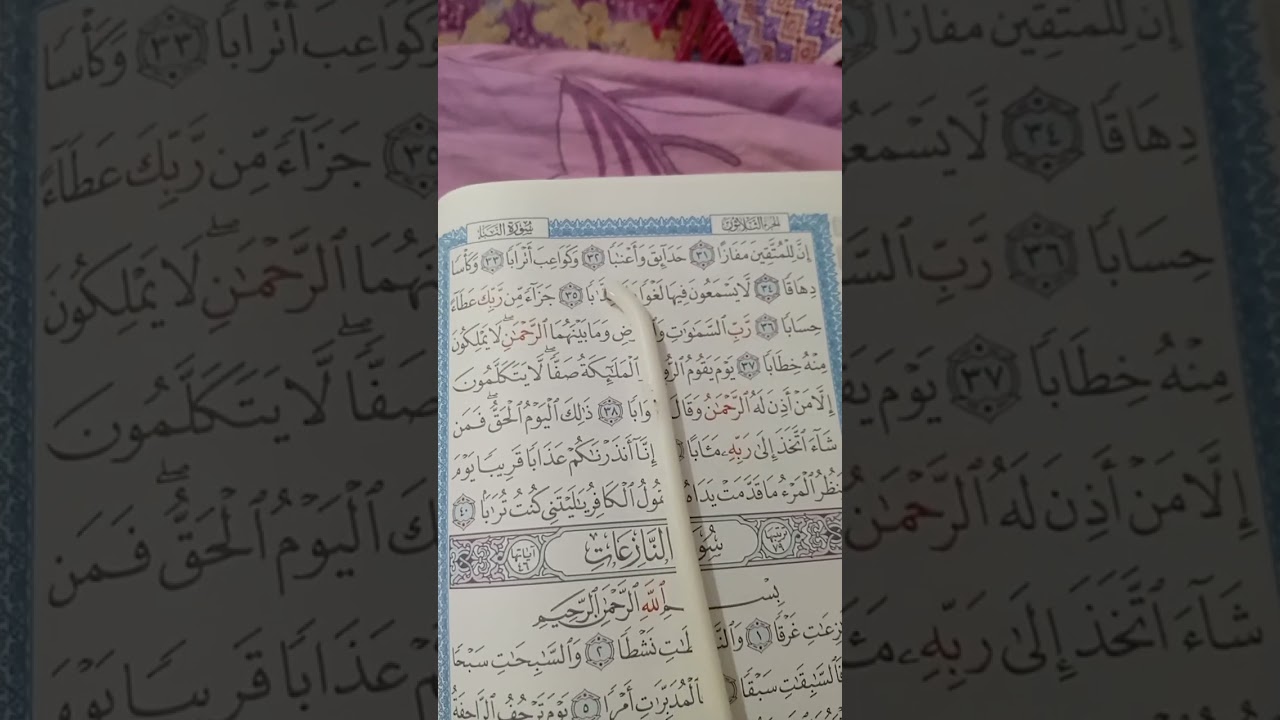 الجزء الثلاثون
سُورَةُ النَّبَإِ
إِنَّ لِلْمُتَّقِينَ مَفَازًا ٣١ حَدَآئِقَ وَأَعْنَٰبًا ٣٢ وَكَوَاعِبَ أَتْرَابًا ٣٣ وَكَأْسًا
دِهَاقًا ٣٤ لَّا يَسْمَعُونَ فِيهَا لَغْوًا ٣٥ جَزَآءً مِّن رَّبِّكَ عَطَآءً
حِسَابًا ٣٦ رَّبِّ ٱلسَّمَٰوَٰتِ وَمَا بَيْنَهُمَا ٱلرَّحْمَٰنِۖ لَا يَمْلِكُونَ
مِنْهُ خِطَابًا ٣٧ يَوْمَ يَقُومُ ٱلْمَلَٰٓئِكَةُ صَفًّاۖ لَّا يَتَكَلَّمُونَ
إِلَّا مَنْ أَذِنَ لَهُ ٱلرَّحْمَٰنُ وَقَالَ ٣٨ ذَٰلِكَ ٱلْيَوْمُ ٱلْحَقُّۖ فَمَن
شَآءَ ٱتَّخَذَ إِلَىٰ رَبِّهِۦ مَـَٔابًا إِنَّآ أَنذَرْنَٰكُمْ عَذَابًا قَرِيبًا يَوْمَ
ٱلْمَرْءُ مَا قَدَّمَتْ يَدَاهُ ٱلْكَافِرُ يَٰلَيْتَنِى كُنتُ تُرَٰبًا ٤٠
ترتيبها ٧٩
سُورَةُ النَّازِعَاتِ
آياتها ٤٦
بِسْمِ ٱللَّهِ ٱلرَّحْمَٰنِ ٱلرَّحِيمِ
غَرْقًا ١ نَشْطًا ٢ وَٱلسَّٰبِحَٰتِ سَبْحًا
فَٱلسَّٰبِقَٰتِ سَبْقًا أَمْرًا ٥ يَوْمَ تَرْجُفُ ٱلرَّاجِفَةُ